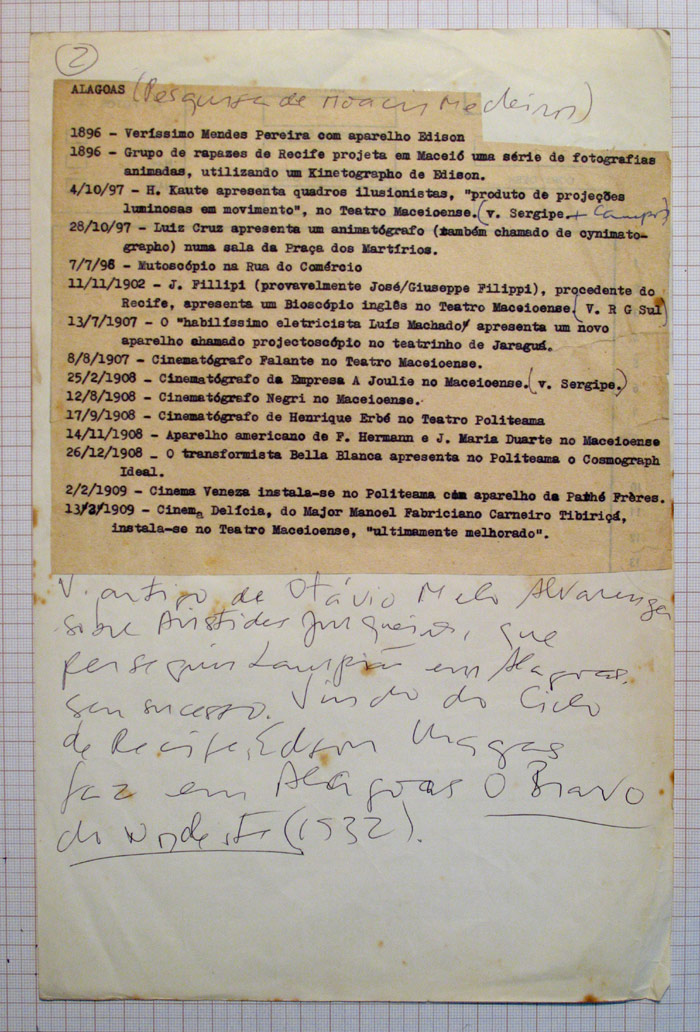 2
ALAGOAS (Pesquisa de Moacir Medeiros)
1896 - Veríssimo Mendes Pereira com aparelho Edison
1896 - Grupo de rapazes de Recife projeta em Maceió uma série de fotografias
animadas, utilizando um Kinetographo de Edison.
4/10/97 - H. Kaute apresenta quadros ilusionistas, "produto de projeções
luminosas em movimento", no Teatro Maceioense. (v. Sergipe + Campos)
28/10/97 - Luiz Cruz apresenta um animatógrafo (também chamado de cynimato-
grapho) numa sala da Praça dos Martírios.
7/7/98 - Mutoscópio na Rua do Comércio
11/11/1902 - J. Fillipi (provavelmente José/Giuseppe Filippi), procedente do
Recife, apresenta um Bioscópio inglês no Teatro Maceioense. (V. R G Sul)
13/7/1907 - O "habilíssimo eletricista Luís Machado" apresenta um novo
aparelho chamado projectoscópio no teatrinho de Jaraguá.
8/8/1907 - Cinematógrafo Falante no Teatro Maceioense.
25/2/1908 - Cinematógrafo da Empresa A Joulie no Maceioense. (v. Sergipe.)
12/8/1908 - Cinematógrafo Negri no Maceioense.
17/9/1908 - Cinematógrafo de Henrique Erbé no Teatro Politeama
14/11/1908 - Aparelho americano de F. Hermann e J. Maria Duarte no Maceioense
26/12/1908 _ O transformista Bella Blanca apresenta no Politeama o Cosmograph
Ideal.
2/2/1909 - Cinema Veneza instala-se no Politeama com aparelho da Pathé Frères.
13/3/1909 - Cinema Delícia, do Major Manoel Fabriciano Carneiro Tibiriçá,
instala-se no Teatro Maceioense, "ultimamente melhorado".
V. artigo de Otávio Melo Alvarenga
sobre Aristides Junqueira, que
perseguiu Lampião em Alagoas,
sem sucesso. Vindo do Ciclo
de Recife, Edson Chagas
faz em Alagoas O Bravo
do Nordeste (1932).